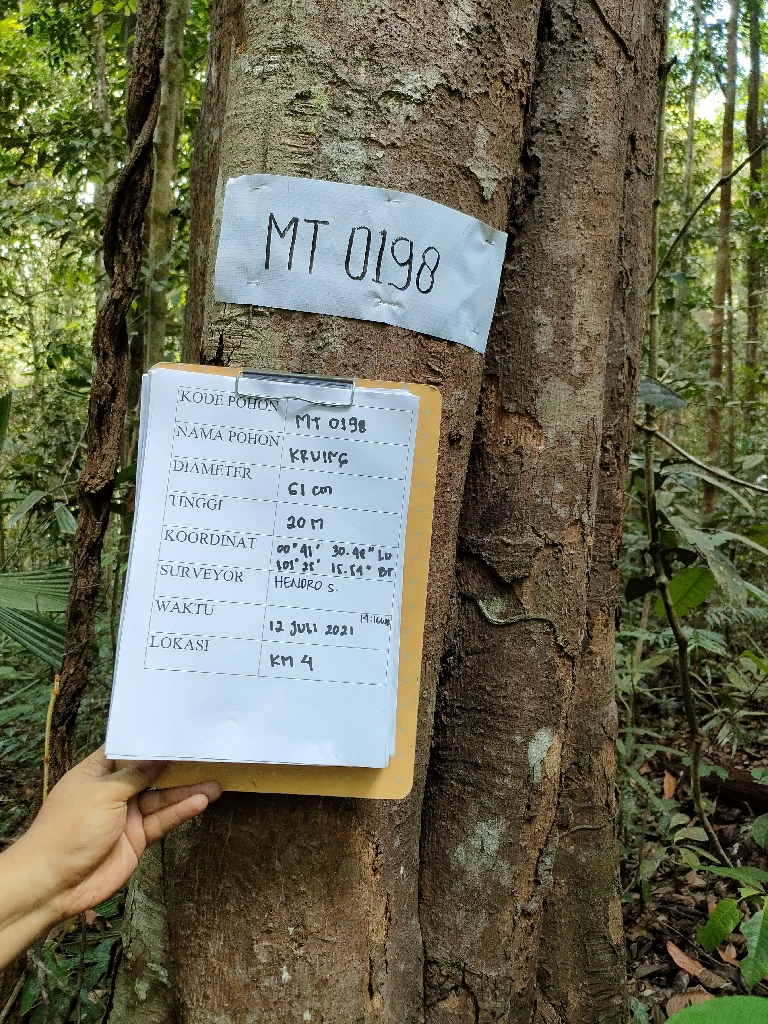 MT 0198
KODE POHON MT 0198
NAMA POHON KRUING
DIAMETER 61 cm
TINGGI 20 M
KOORDINAT 00° 41' 30.48" LU
101° 35' 15.54" BT
SURVEYOR HENDRO S.
WAKTU 12 JULI 2021
LOKASI KM 4